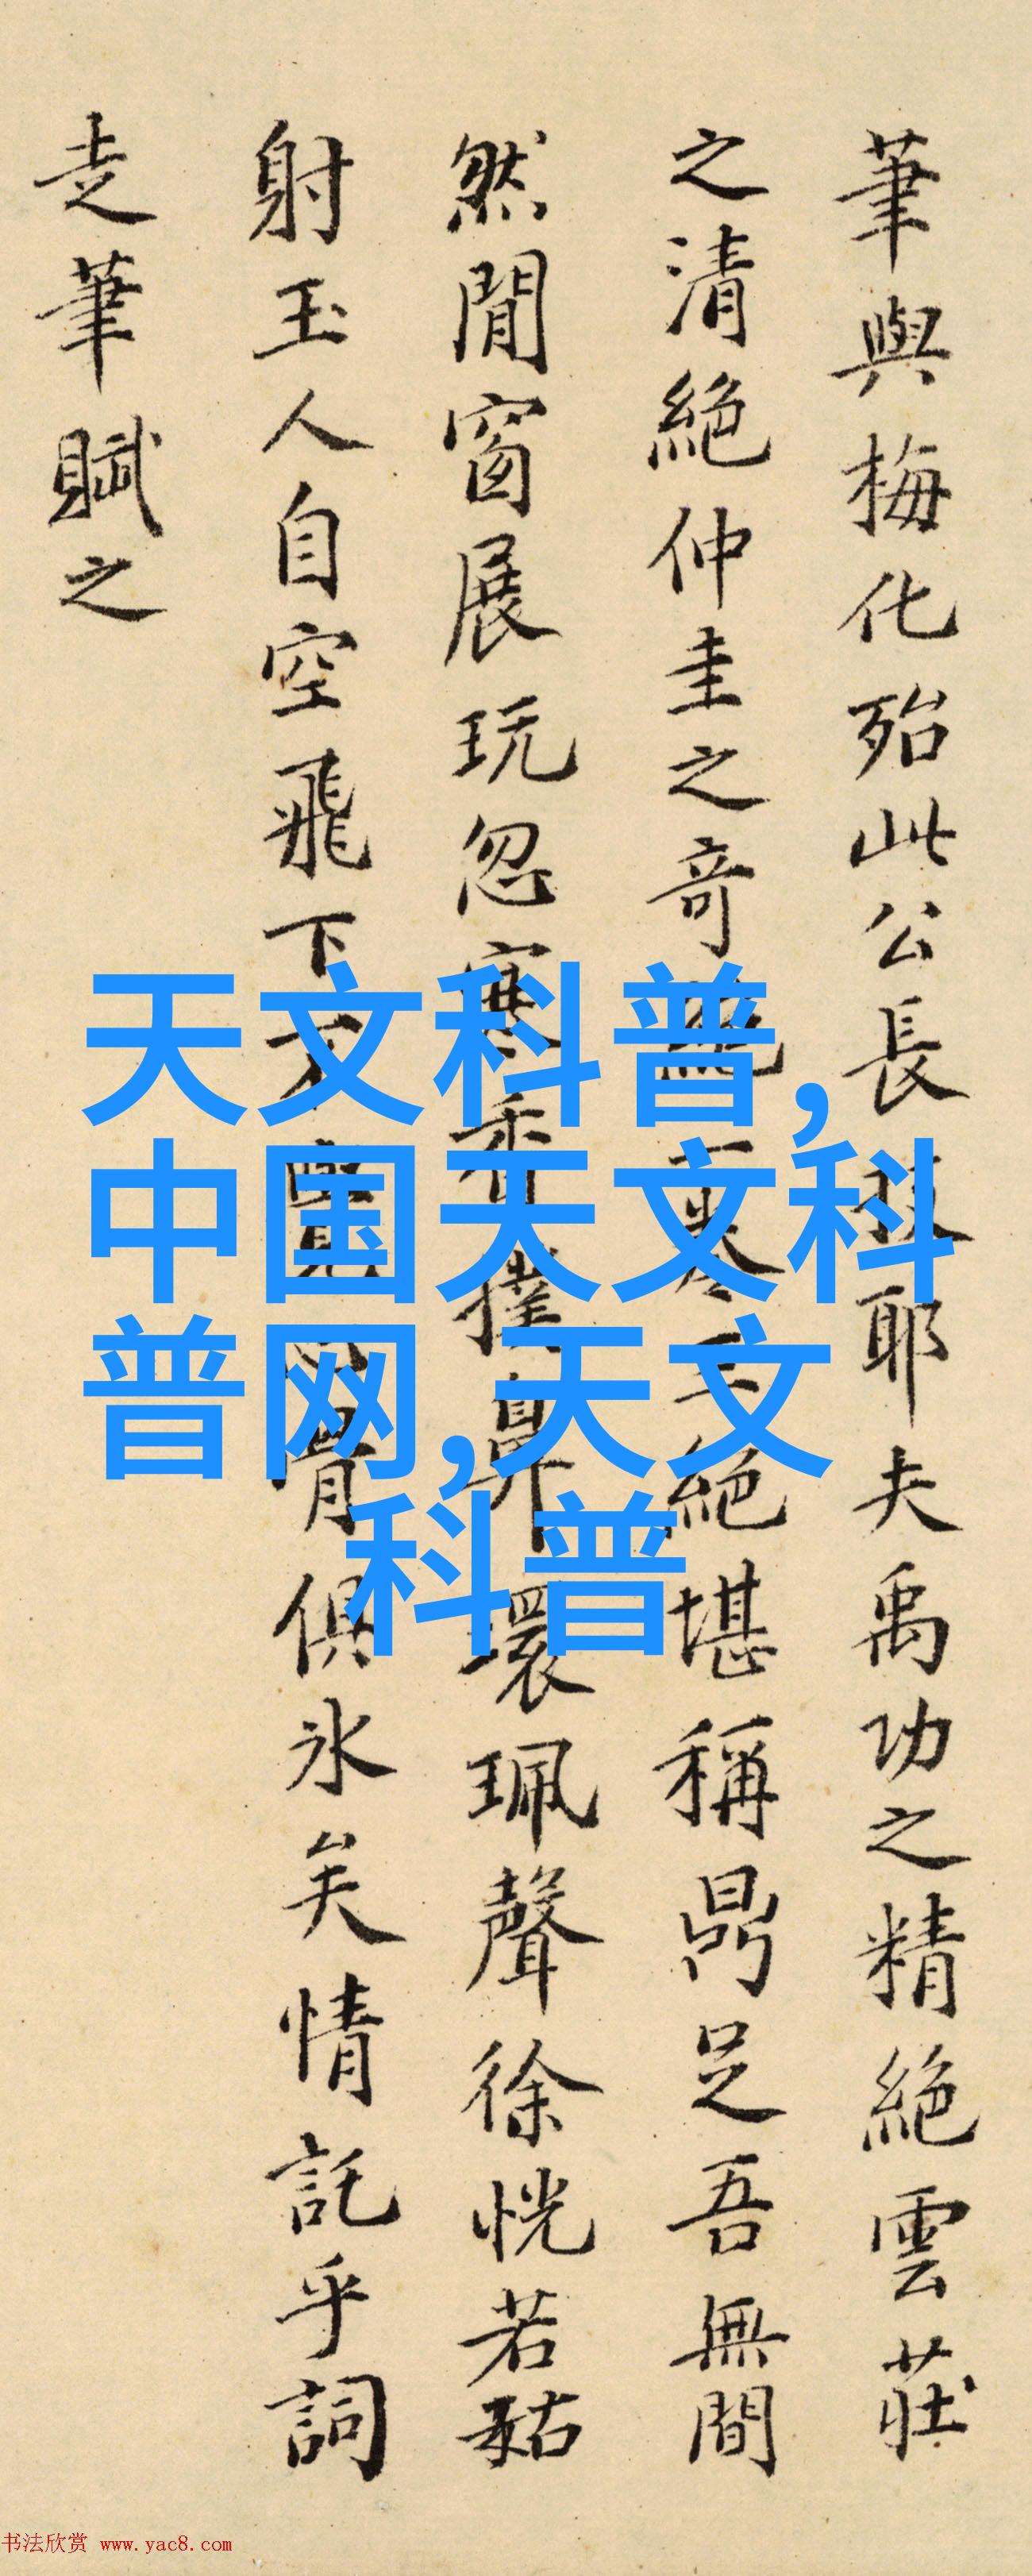 筆與梅化殆此公長技耶夫禹功之精絕雲莊
之清絕仲圭之奇絕一卷三絕堪稱鼎足吾無間
然閒窗展玩忽寒香撲鼻環珮聲徐恍若
射玉人自空飛下不覺骨俱冰矣情託乎詞
走筆賦之
天文科普,
中国天文科
普网,天文
科普
书法欣赏 www.yac8.com